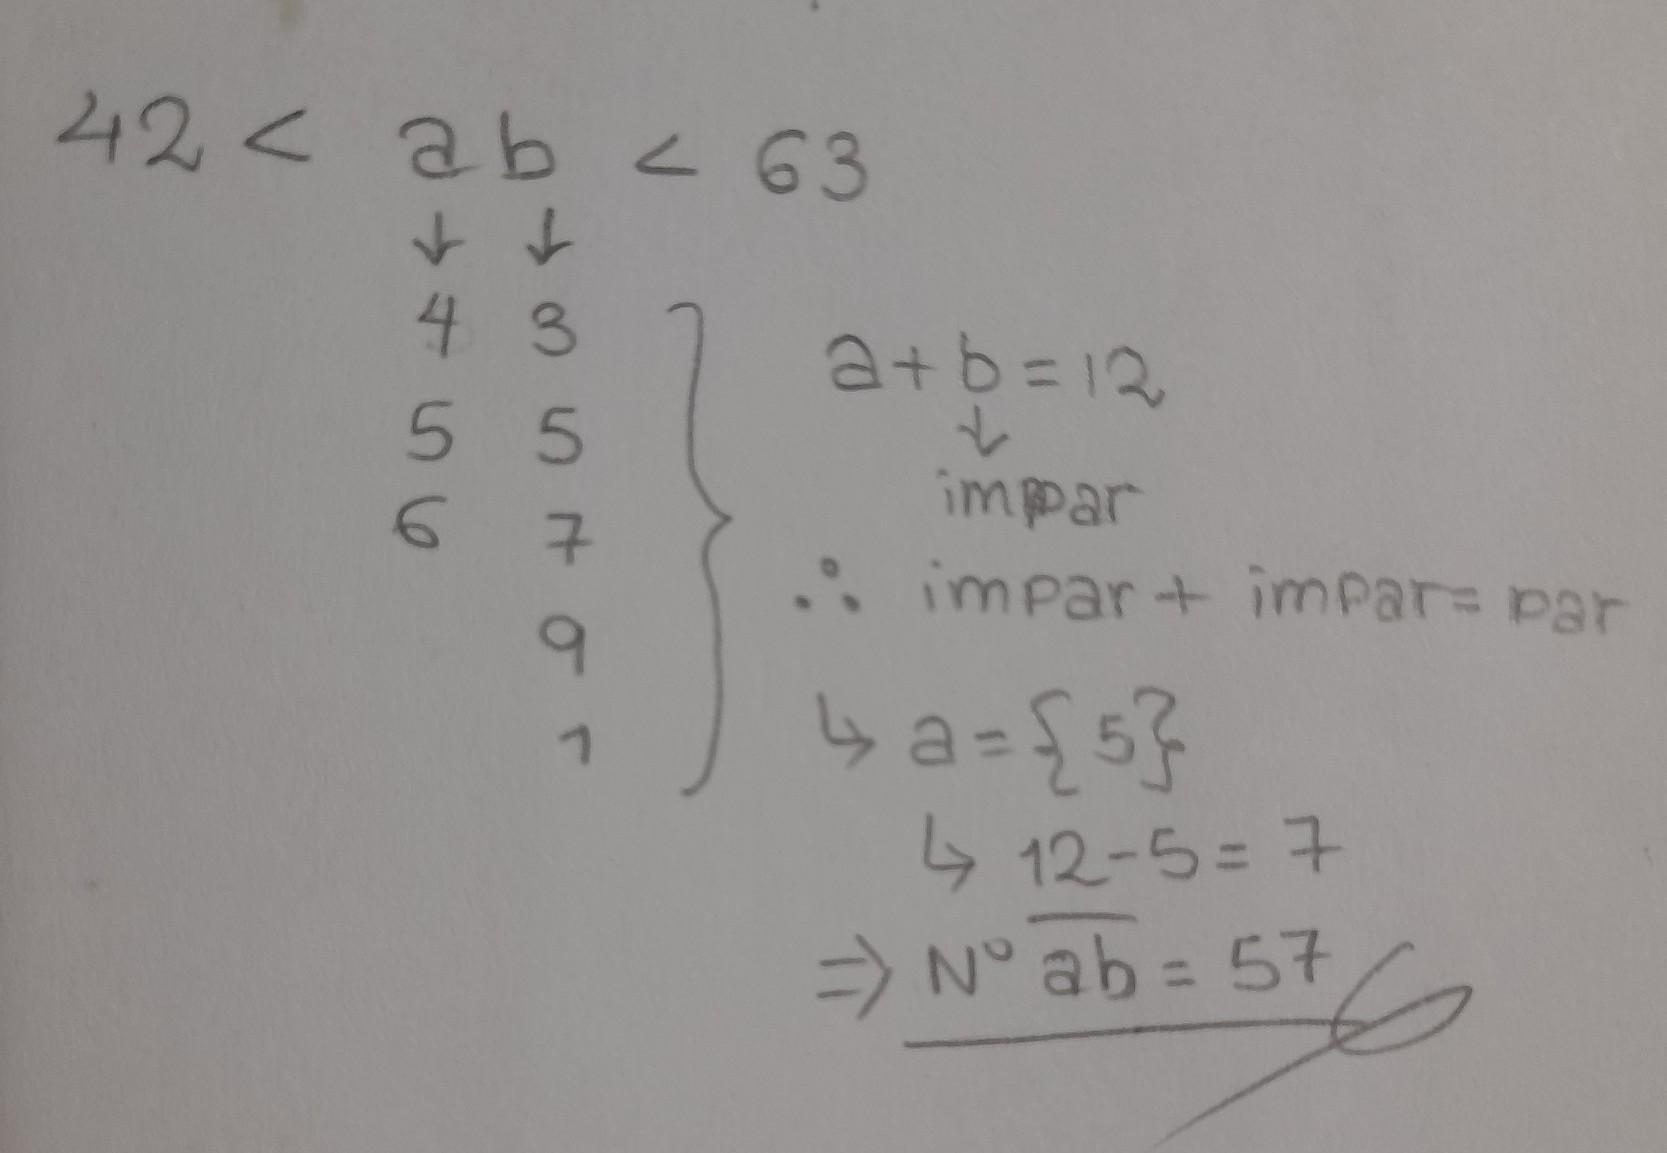 42 < ab < 63
↓ ↓
4 3
5 5
6 7
9
1
a+b=12
↓
impar
∴ impar + impar = par
↳ a={5}
↳ 12-5=7
⇒ Nº a̅b̅ = 57